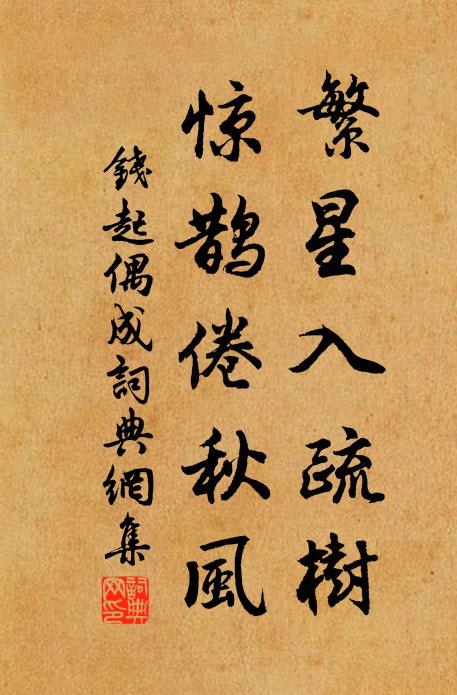 繁星入疏樹
惊鹊倦秋風
錢起偶成詞典網集
詞典网印